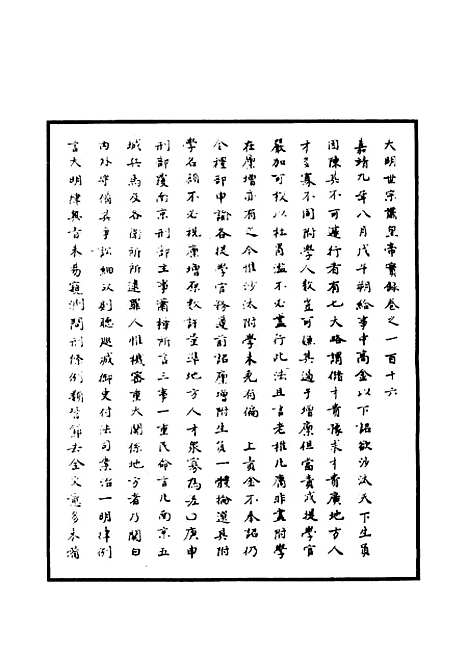 大明世宗肅皇帝實錄卷之一百十六
嘉靖九年八月戊午朔給事中高金以下詔欲沙汰天下生員
因陳其不可遽行者有七大略謂儲才貴豫求才貴廣地方人
才多寡不同附學人數豈可嫌其過于增廩但當責成提學官
嚴加可校以杜冒濫不必盡行此法且言老稚凡庸非盡附學
在廩增亦有之今惟沙汰附學未免有偏　上責金不奉詔仍
令禮部申諭各提學官務遵前詔廩增附生員一體掄選其附
學名額不必視廩增原數許量準地方人才衆寡為左〇庚申
刑部覆南京刑部主事蕭樟所言三事一重民命言凡南京五
城兵馬及各衛所所逮罪人惟機密重大關係地方者乃關白
內外守備其爭訟細故則聽巡城御史付法司業治一明律例
言大明律與音未易窺測問刑條例類皆節去全文意多未備